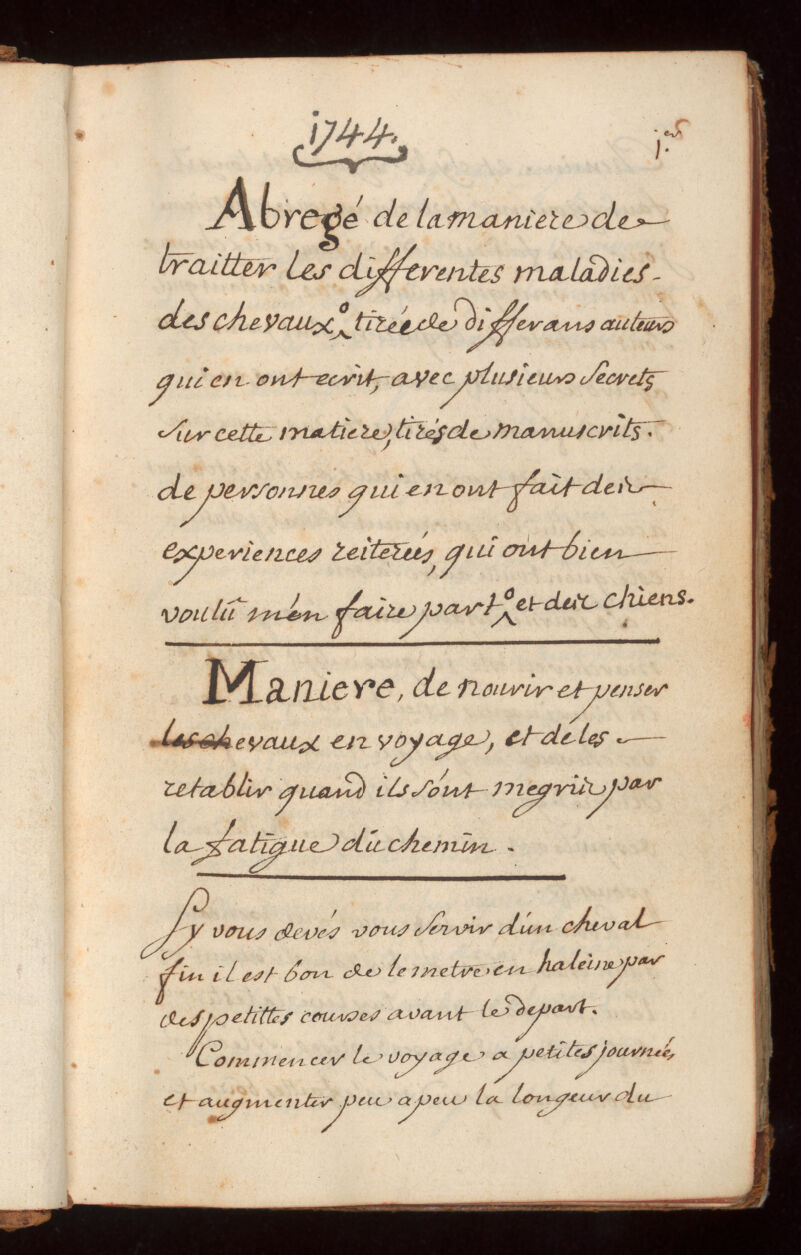 1744.
1.er
Abregé de la maniere de
traitter les differentes maladies
des chevaux, tirée de differans auteurs
qui en ont ecrit, avec plusieurs secrets
sur cette matiere, tirés de manuscrits.
de personnes qui en ont fait des
experiences reiterées, qui ont bien
voulû m'en faire part et des chiens.
Maniere, de nourir et penser
les chevaux en voyage, et de les
retablir quand ils sont megris par
la fatigue du chemin.
Sy vous devés vous servir d'un cheval
fin il est bon de le metre en haleine par
des petittes courses avant le depart.
Commencer le voyage a petites journées,
et augmenter peu a peu la longeur du